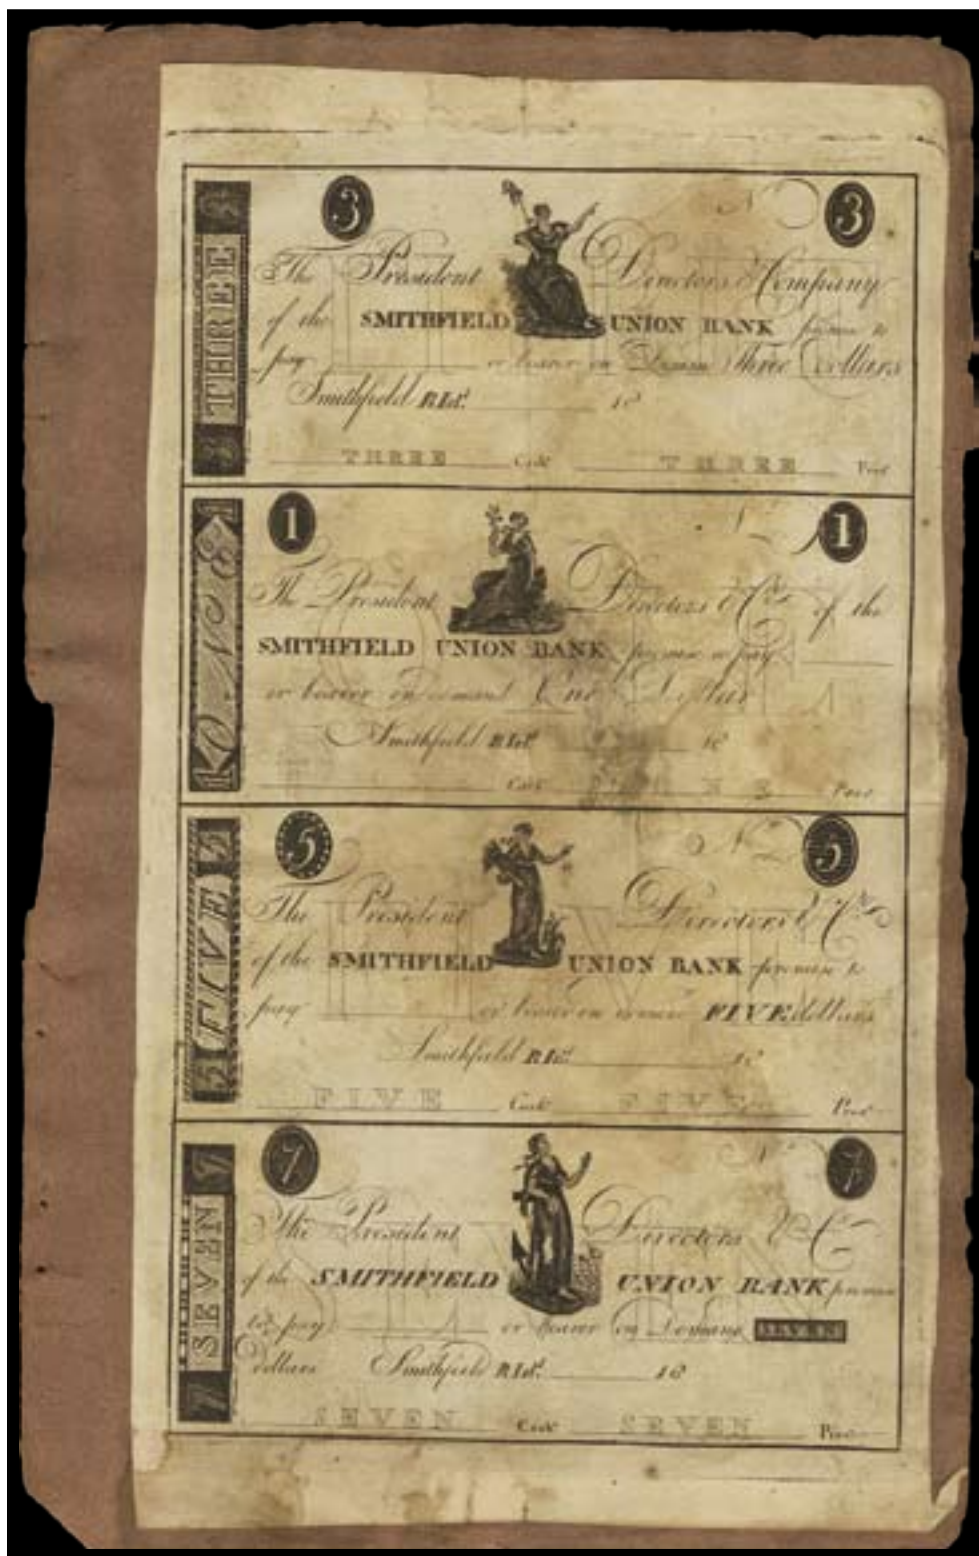 3 3
THREE
The President Directors & Company
of the SMITHFIELD UNION BANK promise to
pay or bearer on Demand Three Dollars
Smithfield R.Isld. 18
THREE Cash.r THREE Pres.t
1 1
ONE
The President Directors & Co. of the
SMITHFIELD UNION BANK promise to pay
or bearer on demand One Dollar
Smithfield R.Isld. 18
Cash.r Pres.t
5 No. 5
5 FIVE 5
The President Directors & Co.
of the SMITHFIELD UNION BANK promise to
pay or bearer on demand FIVE dollars
Smithfield R.Isld. 18
FIVE Cash.r FIVE Pres.t
7 No. 7
7 SEVEN 7
The President Directors & Co.
of the SMITHFIELD UNION BANK promise
to pay or bearer on Demand SEVEN
dollars Smithfield R.Isld. 18
SEVEN Cash.r SEVEN Pres.t